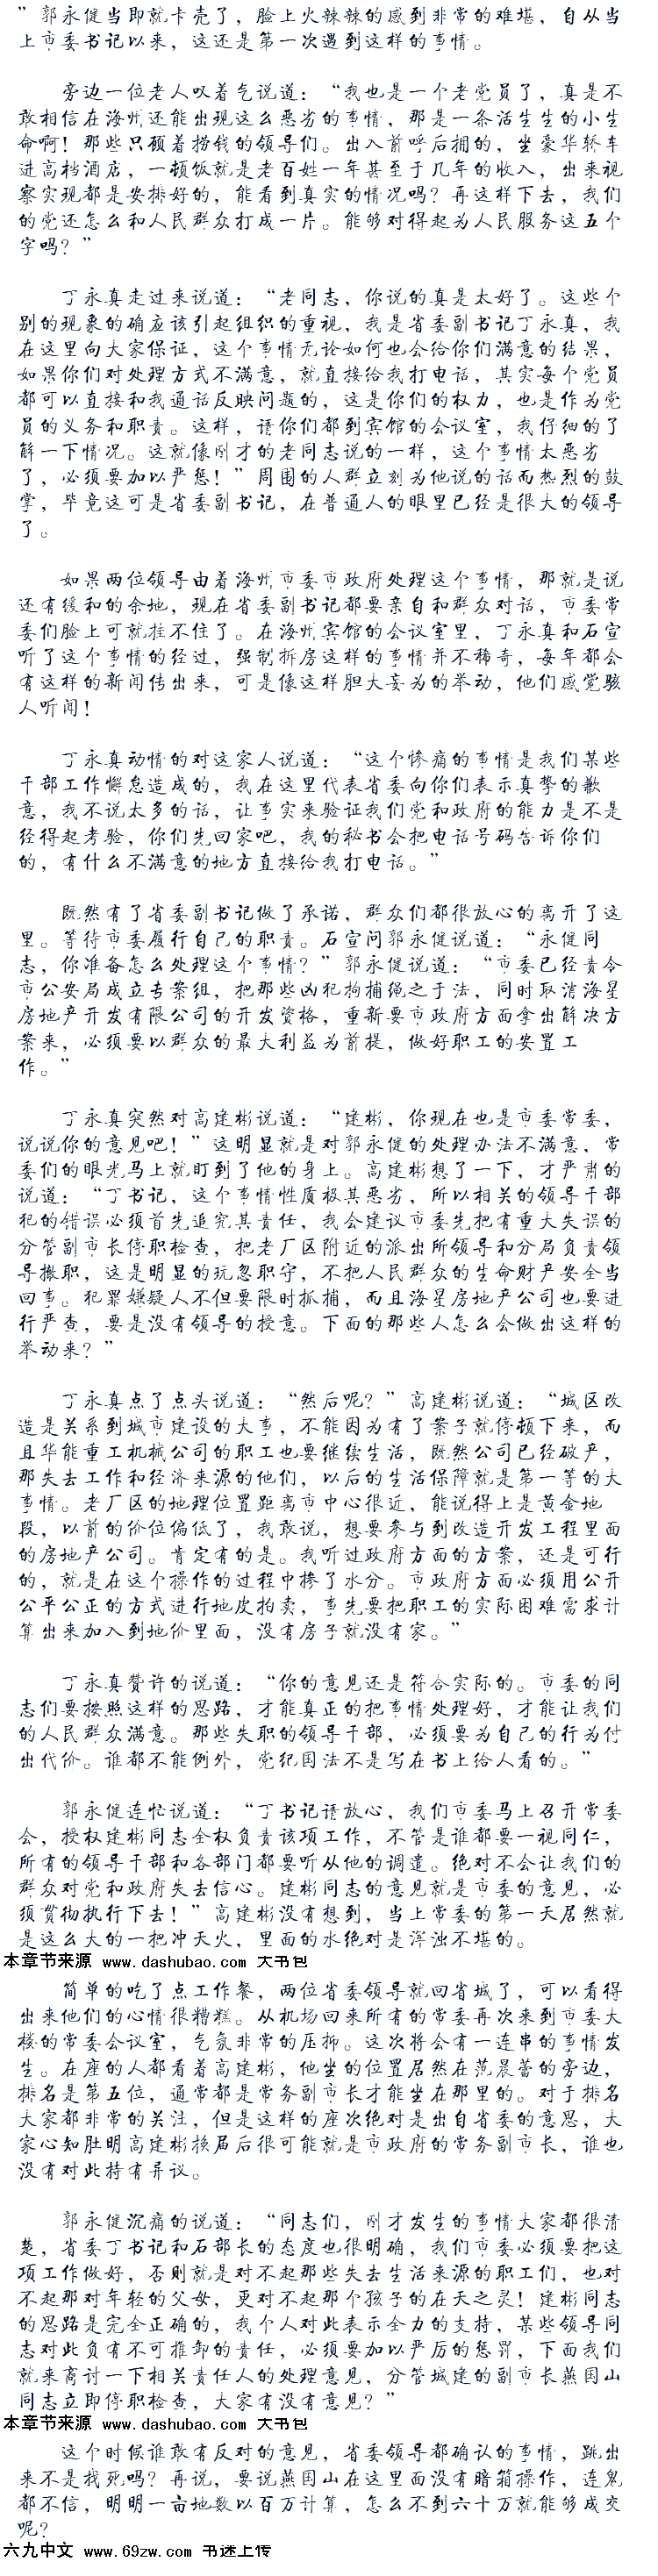 ”郭永健当即就卡壳了，脸上火辣辣的感到非常的难堪，自从当
上市委书记以来，这还是第一次遇到这样的事情。
旁边一位老人叹着气说道：“我也是一个老党员了，真是不
敢相信在海州还能出现这么恶劣的事情，那是一条活生生的小生
命啊！那些只顾着捞钱的领导们。出入前呼后拥的，坐豪华轿车
进高档酒店，一顿饭就是老百姓一年甚至于几年的收入，出来视
察实现都是安排好的，能看到真实的情况吗？再这样下去，我们
的党还怎么和人民群众打成一片。能够对得起为人民服务这五个
字吗？”
丁永真走过来说道：“老同志，你说的真是太好了。这些个
别的现象的确应该引起组织的重视，我是省委副书记丁永真，我
在这里向大家保证，这个事情无论如何也会给你们满意的结果，
如果你们对处理方式不满意，就直接给我打电话，其实每个党员
都可以直接和我通话反映问题的，这是你们的权力，也是作为党
员的义务和职责。这样，请你们都到宾馆的会议室，我仔细的了
解一下情况。这就像刚才的老同志说的一样，这个事情太恶劣
了，必须要加以严惩！”周围的人群立刻为他说的话而热烈的鼓
掌，毕竟这可是省委副书记，在普通人的眼里已经是很大的领导
了。
如果两位领导由着海州市委市政府处理这个事情，那就是说
还有缓和的余地，现在省委副书记都要亲自和群众对话，市委常
委们脸上可就挂不住了。在海州宾馆的会议室里，丁永真和石宣
听了这个事情的经过，强制拆房这样的事情并不稀奇，每年都会
有这样的新闻传出来，可是像这样胆大妄为的举动，他们感觉骇
人听闻！
丁永真动情的对这家人说道：“这个惨痛的事情是我们某些
干部工作懈怠造成的，我在这里代表省委向你们表示真挚的歉
意，我不说太多的话，让事实来验证我们党和政府的能力是不是
经得起考验，你们先回家吧，我的秘书会把电话号码告诉你们
的，有什么不满意的地方直接给我打电话。”
既然有了省委副书记做了承诺，群众们都很放心的离开了这
里。等待市委履行自己的职责。石宣问郭永健说道：“永健同
志，你准备怎么处理这个事情？”郭永健说道：“市委已经责令
市公安局成立专案组，把那些凶犯拘捕绳之于法，同时取消海星
房地产开发有限公司的开发资格，重新要市政府方面拿出解决方
案来，必须要以群众的最大利益为前提，做好职工的安置工
作。”
丁永真突然对高建彬说道：“建彬，你现在也是市委常委，
说说你的意见吧！”这明显就是对郭永健的处理办法不满意，常
委们的眼光马上就盯到了他的身上。高建彬想了一下，才严肃的
说道：“丁书记，这个事情性质极其恶劣，所以相关的领导干部
犯的错误必须首先追究其责任，我会建议市委先把有重大失误的
分管副市长停职检查，把老厂区附近的派出所领导和分局负责领
导撤职，这是明显的玩忽职守，不把人民群众的生命财产安全当
回事。犯罪嫌疑人不但要限时抓捕，而且海星房地产公司也要进
行严查，要是没有领导的授意。下面的那些人怎么会做出这样的
举动来？”
丁永真点了点头说道：“然后呢？”高建彬说道：“城区改
造是关系到城市建设的大事，不能因为有了案子就停顿下来，而
且华能重工机械公司的职工也要继续生活，既然公司已经破产，
那失去工作和经济来源的他们，以后的生活保障就是第一等的大
事情。老厂区的地理位置距离市中心很近，能说得上是黄金地
段，以前的价位偏低了，我敢说，想要参与到改造开发工程里面
的房地产公司。肯定有的是。我听过政府方面的方案，还是可行
的，就是在这个操作的过程中掺了水分。市政府方面必须用公开
公平公正的方式进行地皮拍卖，事先要把职工的实际困难需求计
算出来加入到地价里面，没有房子就没有家。”
丁永真赞许的说道：“你的意见还是符合实际的。市委的同
志们要按照这样的思路，才能真正的把事情处理好，才能让我们
的人民群众满意。那些失职的领导干部，必须要为自己的行为付
出代价。谁都不能例外，党纪国法不是写在书上给人看的。”
郭永健连忙说道：“丁书记请放心，我们市委马上召开常委
会，授权建彬同志全权负责该项工作，不管是谁都要一视同仁，
所有的领导干部和各部门都要听从他的调遣。绝对不会让我们的
群众对党和政府失去信心。建彬同志的意见就是市委的意见，必
须贯彻执行下去！”高建彬没有想到，当上常委的第一天居然就
是这么大的一把冲天火，里面的水绝对是浑浊不堪的。
本章节来源 www.dashubao.com 大书包
简单的吃了点工作餐，两位省委领导就回省城了，可以看得
出来他们的心情很糟糕。从机场回来所有的常委再次来到市委大
楼的常委会议室，气氛非常的压抑。这次将会有一连串的事情发
生。在座的人都看着高建彬，他坐的位置居然在范晨蕾的旁边，
排名是第五位，通常都是常务副市长才能坐在那里的。对于排名
大家都非常的关注，但是这样的座次绝对是出自省委的意思，大
家心知肚明高建彬换届后很可能就是市政府的常务副市长，谁也
没有对此持有异议。
郭永健沉痛的说道：“同志们，刚才发生的事情大家都很清
楚，省委丁书记和石部长的态度也很明确，我们市委必须要把这
项工作做好，否则就是对不起那些失去生活来源的职工们，也对
不起那对年轻的父母，更对不起那个孩子的在天之灵！建彬同志
的思路是完全正确的，我个人对此表示全力的支持，某些领导同
志对此负有不可推卸的责任，必须要加以严厉的惩罚，下面我们
就来商讨一下相关责任人的处理意见，分管城建的副市长燕国山
同志立即停职检查，大家有没有意见？”
本章节来源 www.dashubao.com 大书包
这个时候谁敢有反对的意见，省委领导都确认的事情，跳出
来不是找死吗？再说，要说燕国山在这里面没有暗箱操作，连鬼
都不信，明明一亩地数以百万计算，怎么不到六十万就能够成交
呢？
六九中文 www.69zw.com 书迷上传